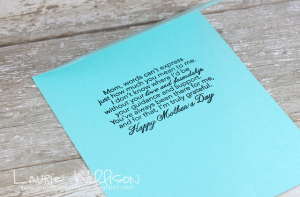 Mom, words can't express
just how much you mean to me.
I don't know where I'd be
without your love and friendship
your guidance and support.
You've always been there for me,
and for that, I'm truly grateful.
Happy Mother's Day
Laurie Willison